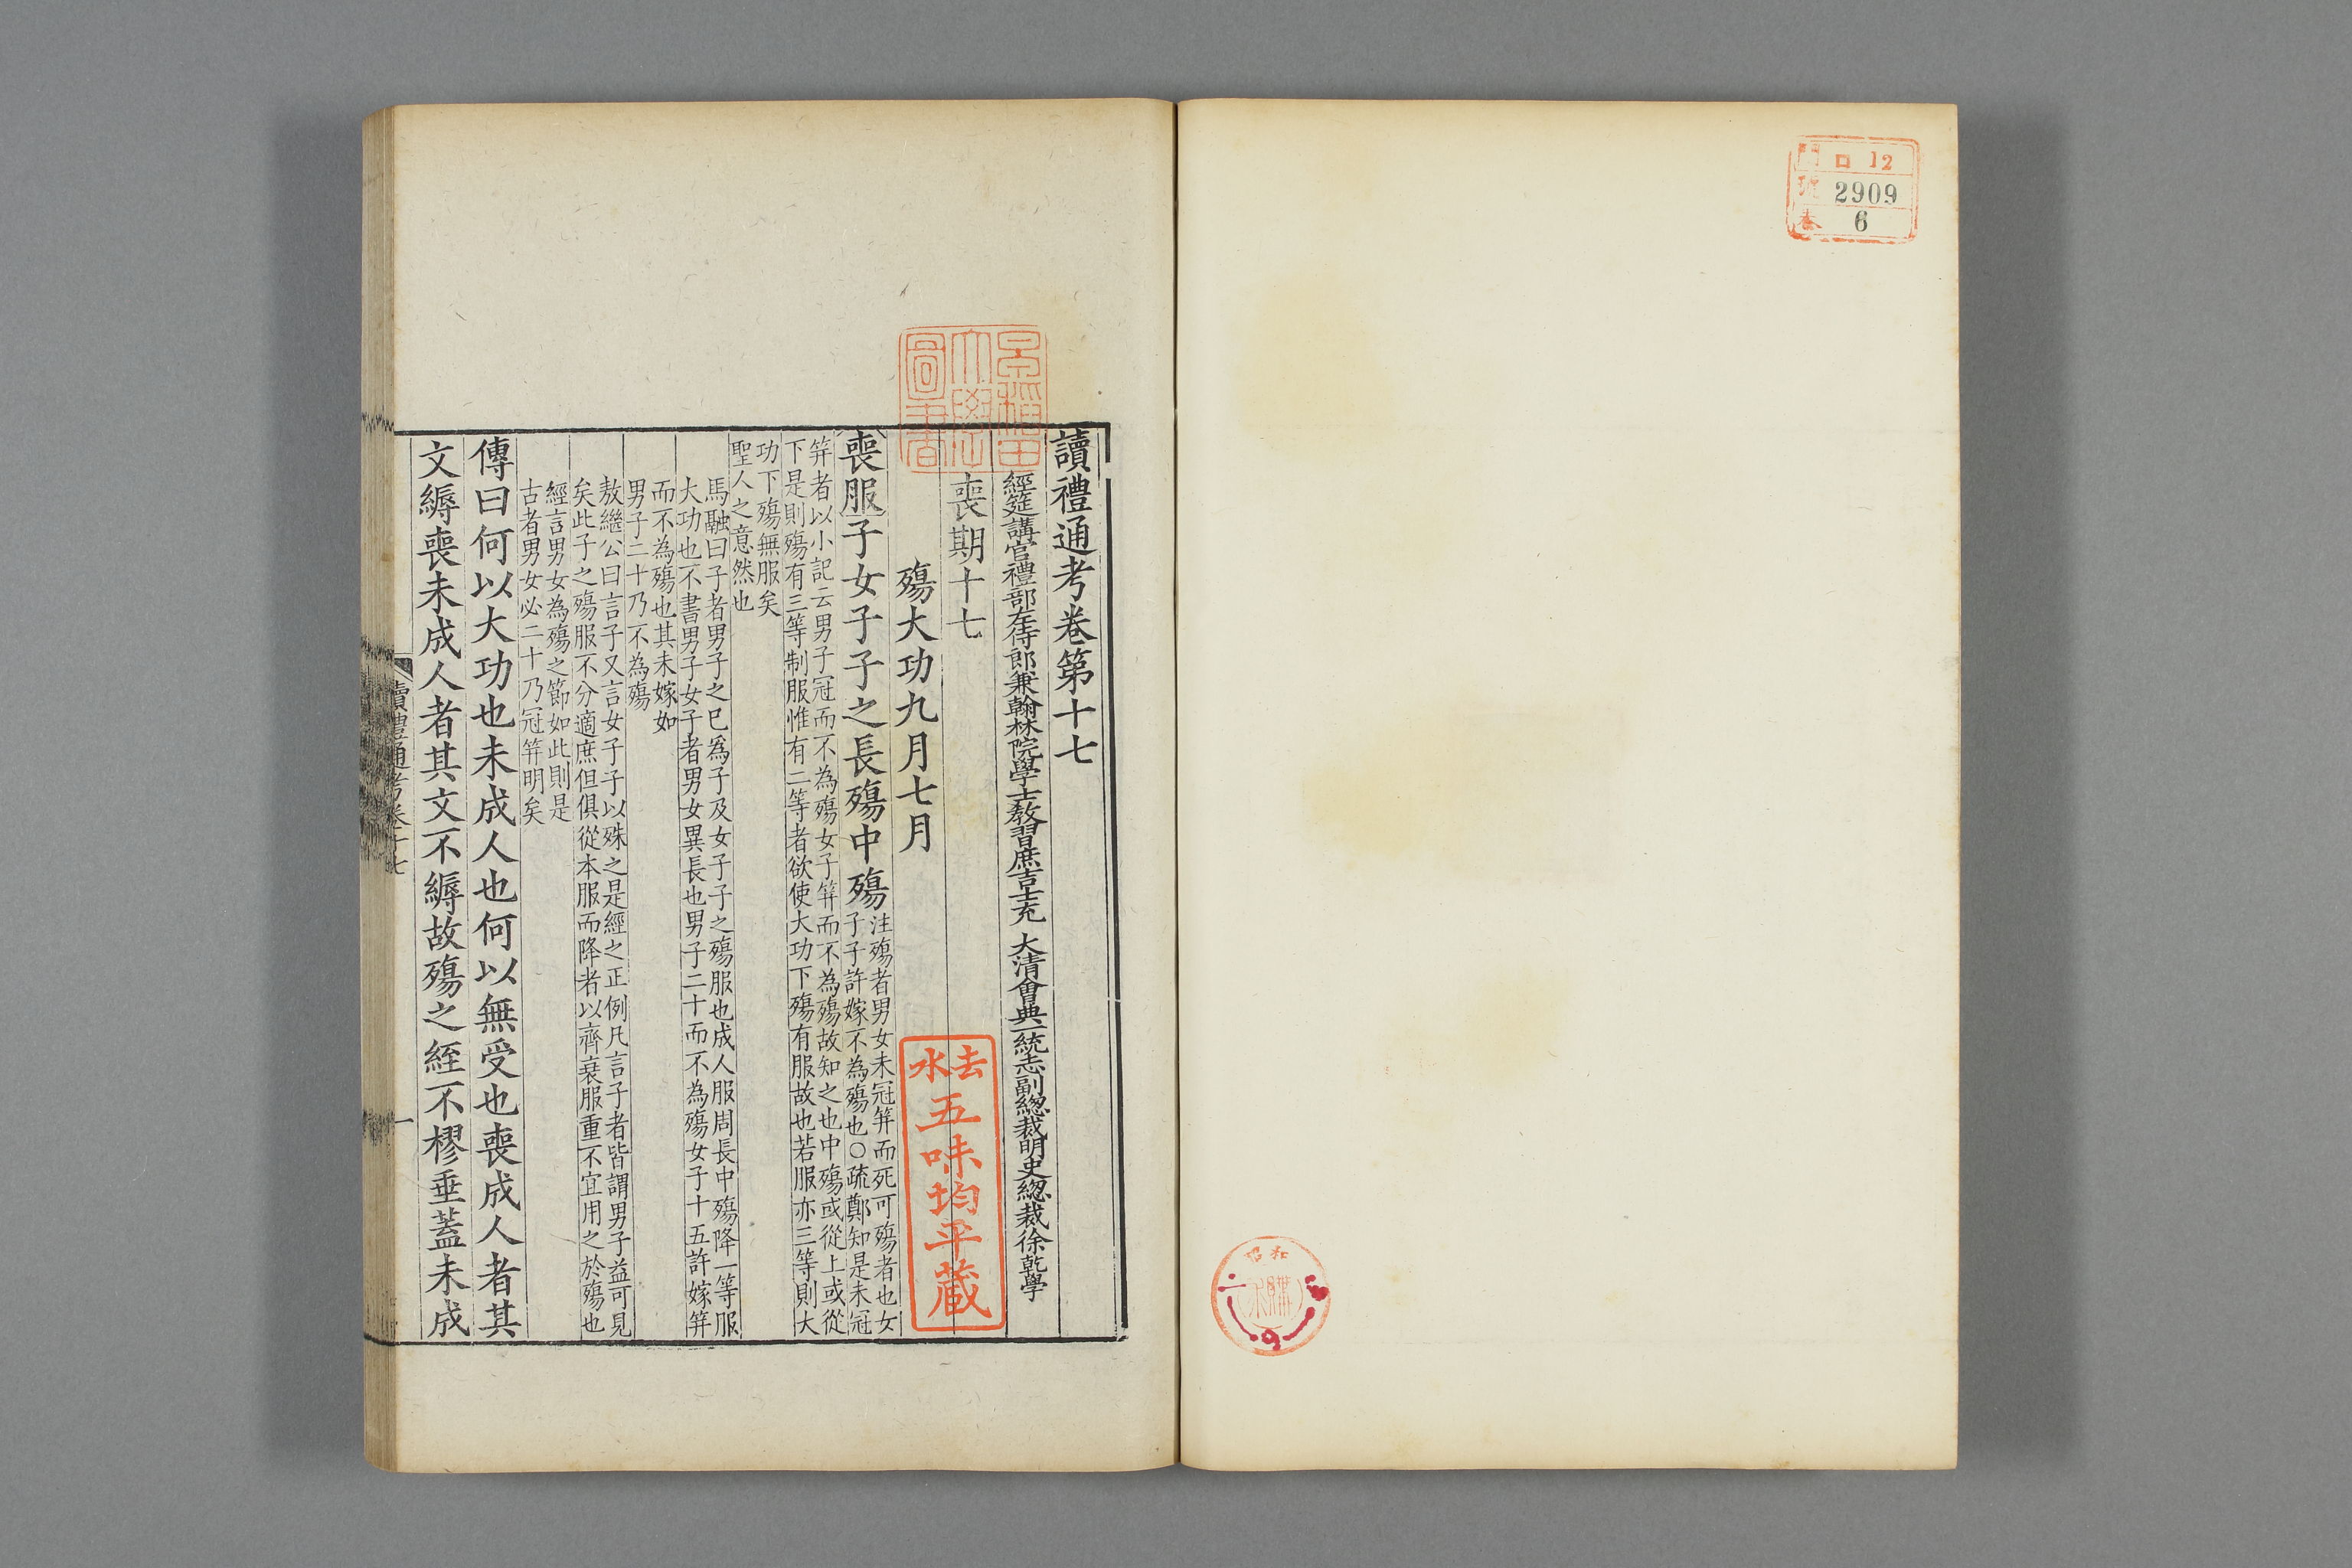 門 ロ 12
號 2909
卷 6
昭和
購
9
讀禮通考卷第十七
經筵講官禮部左侍郎兼翰林院學士教習庶吉士充 大清會典一統志副總裁明史總裁徐乾學
早稲田
大學
圖書
喪期十七
殤大功九月七月
去水
五味均平蔵
喪服子女子子之長殤中殤注殤者男女未冠笄而死可殤者也女
子子許嫁不為殤也○疏鄭知是未冠
笄者以小記云男子冠而不為殤女子笄而不為殤故知之也中殤或從上或從
下是則殤有三等制服惟有二等者欲使大功下殤有服故也若服亦三等則大
功下殤無服矣
聖人之意然也
馬融曰子者男子之已為子及女子子之殤服也成人服周長中殤降一等服
大功也不書男子女子者男女異長也男子二十而不為殤女子十五許嫁笄
而不為殤也其未嫁如
男子二十乃不為殤
敖繼公曰言子又言女子子以殊之是經之正例凡言子者皆謂男子益可見
矣此子之殤服不分適庶但俱從本服而降者以齊衰服重不宜用之於殤也
經言男女為殤之節如此則是
古者男女必二十乃冠笄明矣
傳曰何以大功也未成人也何以無受也喪成人者其
文縟喪未成人者其文不縟故殤之絰不樛垂蓋未成
讀禮通考卷十七
一